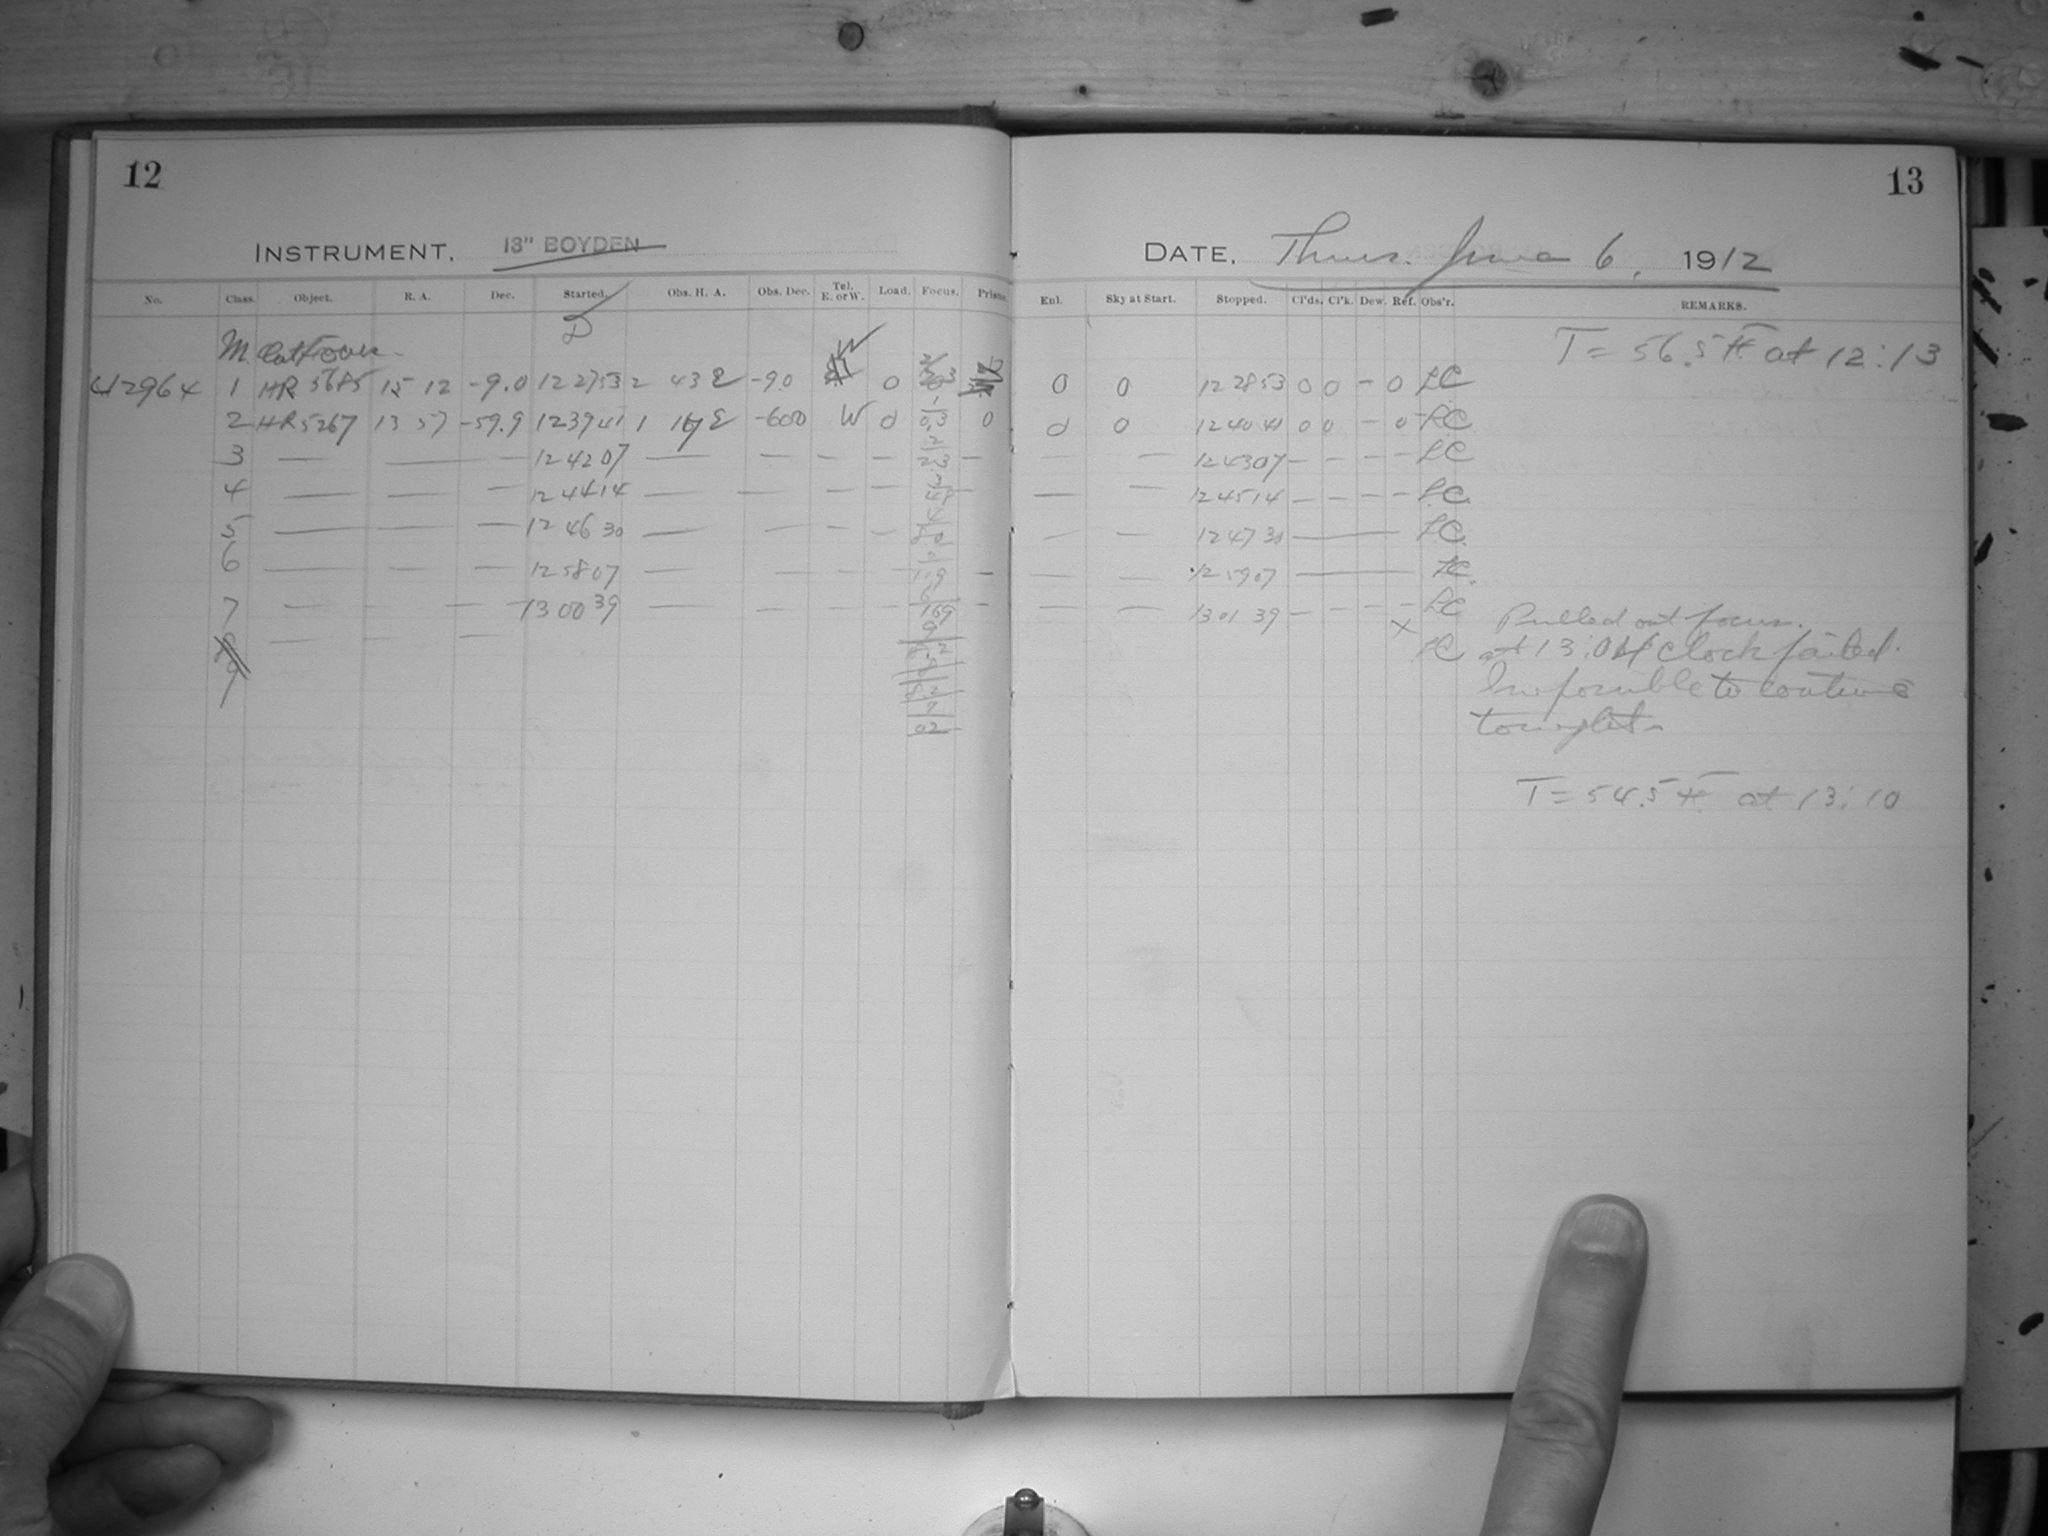 12
INSTRUMENT. 13" BOYDEN
No. Class. Object. R. A. Dec. Started. Obs. H. A. Obs. Dec. Tel. E. or W. Load. Focus. Prism.
D
M.
W
42964 1 HR 5685 15 12 -9.0 12 27 53 2 43 E -9.0 0
2 HR 5267 13 57 -59.9 12 39 41 1 17 E -60.0 W 0 0.3 0
3 — — — 12 42 07 — — — — 2.3 —
4 — — — 12 44 14 — — — — —
5 — — — 12 46 30 — — — —
6 — — — 12 58 07 — — — — —
7 — — — 13 00 39 — — — — —
— — —
02
13
DATE, Thurs. June 6, 1912
Enl. Sky at Start. Stopped. Cl'ds. Cl'k. Dew. Ref. Obs'r. REMARKS.
T = 56.5 at 12:13
0 0 12 28 53 0 0 - 0 LC
0 0 12 40 41 0 0 - 0 LC
— — 12 43 07 - - - - LC
— — 12 45 14 - - - - LC
— — 12 47 30 — LC.
— — 12 59 07 — LC.
— — 13 01 39 - - - - LC
X LC
Pulled out focus.
at 13:04 clock failed.
Impossible to continue
tonight.
T = 54.5 at 13:10